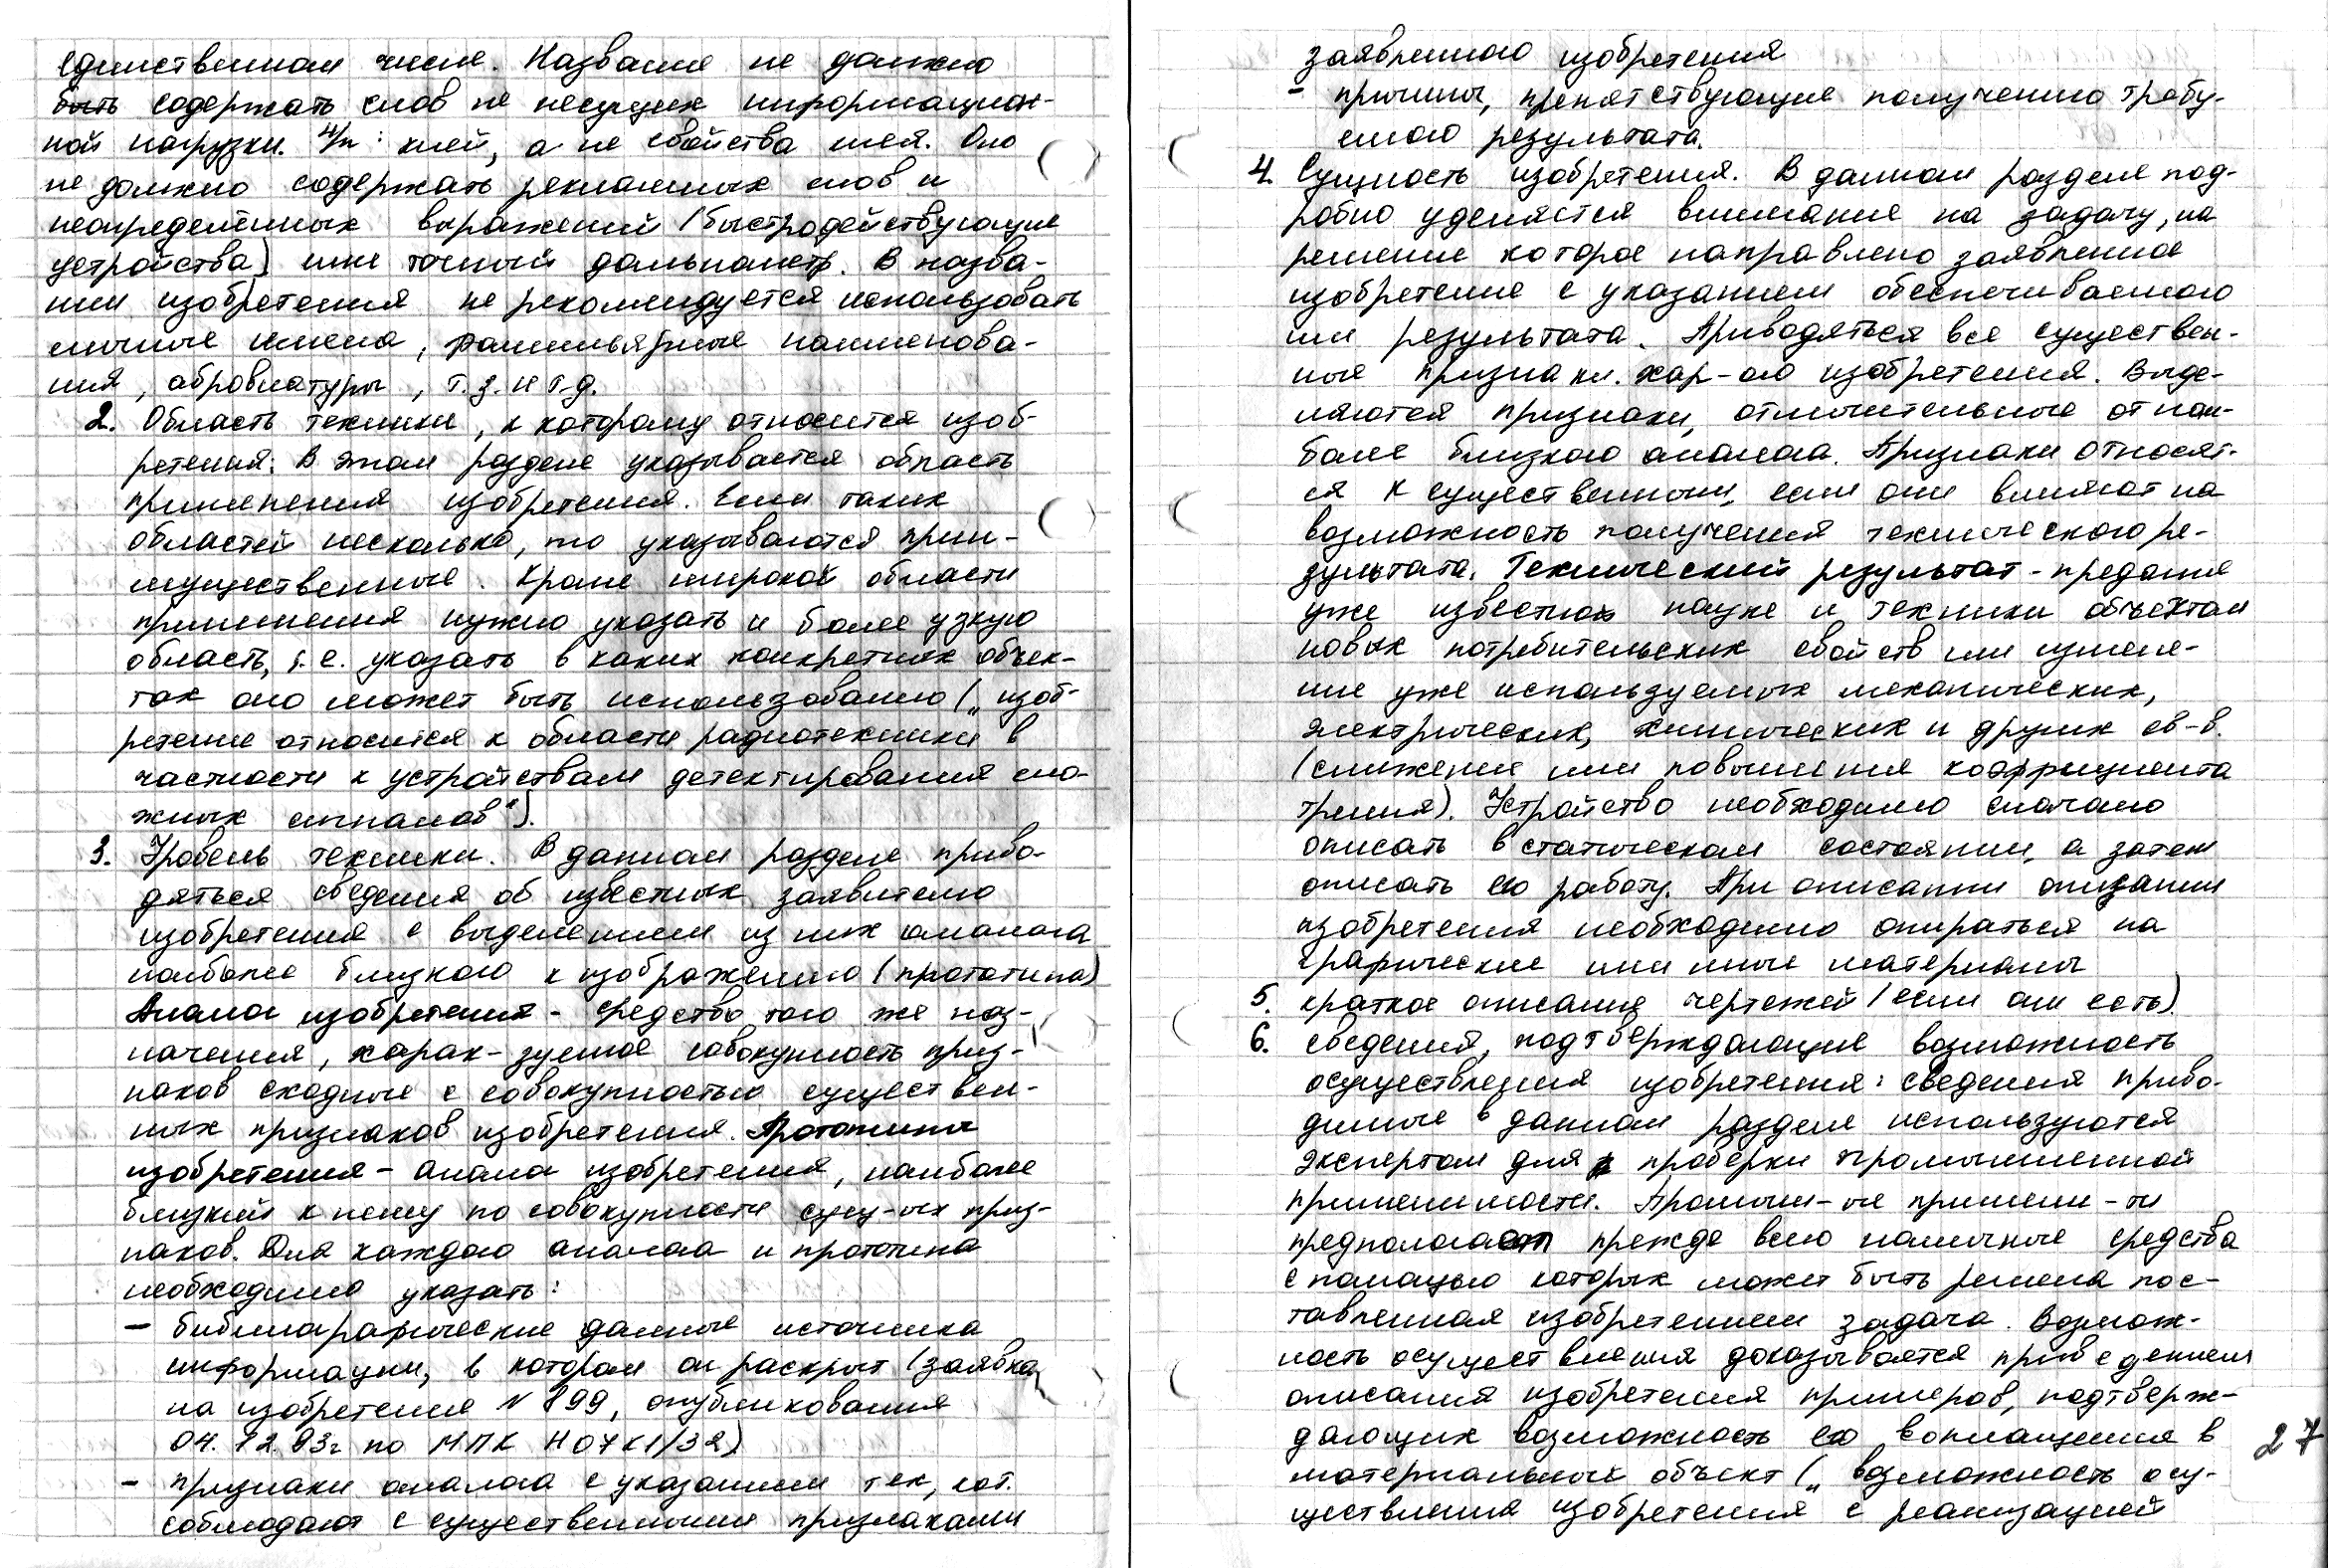 единственном числе. Название не должно
быть содержать слов не несущих информацион-
ной нагрузки. н/п: клей, а не свойства клея. Оно
не должно содержать рекламных слов и
неопределённых выражений (быстродействующие
устройства) или точный дальнометр. В назва-
нии изобретения не рекомендуется использовать
личные имена, фамильярные наименова-
ния, абровиатуры, т.з. и т.д.
2. Область техники, к которому относится изоб-
ретения: В этом разделе указывается область
применения изобретения. Если таких
областей несколько, то указываются приим-
мущественные. Кроме широкой области
применения нужно указать и более узкую
область, т.е. указать в каких конкретных объек-
тах оно может быть использованно („изоб-
ретение относится к области радиотехники в
частности к устройствам детектирования сло-
жных сигналов").
3. Уровень техники. В данном разделе приво-
дяться сведения об известных заявителю
изобретения с выделением из них аналога
наиболее близкого к изображению (прототипа)
Аналог изобретения - средство того же наз-
начения, харак-зуемое совокупность приз-
наков сходные с совокупностью существен-
ных признаков изобретения. Прототипы
изобретения - аналог изобретения, наиболее
близкий к нему по совокупности сущ-ых приз-
наков. Для каждого аналога и прототипа
необходимо указать:
- библиаграфические данные источника
информации, в котором он раскрыт (заявка
на изобретение N 899, опубликования
04.12.93г по МПК H 07K1/32)
- признаки аналога с указанием тех, кот.
соблюдают с существенными признаками
заявленного изобретения
- причины, препятствующие получению требу-
емого результата.
4. Сущность изобретения. В данном разделе под-
робно уделяется внимание на задачу, на
решение которое направлено заявленное
изобретение с указанием обеспечиваемого
им результата. Приводяться все существен-
ные признаки. хар-ого изобретения. Выде-
ляются признаки, отличительные от наи-
более близкого аналога. Признаки относят-
ся к существенным, если они влияют на
возможность получения технического ре-
зультата. Технический результат - предание
уже известной науке и техники объектам
новых потребительских свойств или измене-
ние уже используемых механических,
электрических, химических и других св-в.
(снижение или повышения коэффициента
трения). Устройство необходимо сначало
описать в статическом состоянии, а затем
описать его работу. При описании описании
изобретения необходимо опираться на
графические или иные материалы
5. краткое описание чертежей (если они есть).
6. сведения, подтверждающие возможность
осуществления изобретения: сведения приво-
димые в данном разделе используются
экспертом для проверки промышленной
применимости. Промышл-ые примени-ти
предпологает прежде всего наличные средства
с помощью которых может быть решена пос-
тавленная изобретением задача. Возмож-
ность осуществления доказывается приведением
описания изобретения примеров, подтверж-
дающих возможность его воплощения в
материальных объект („ возможность осу-
ществления изобретения с реализацией
27